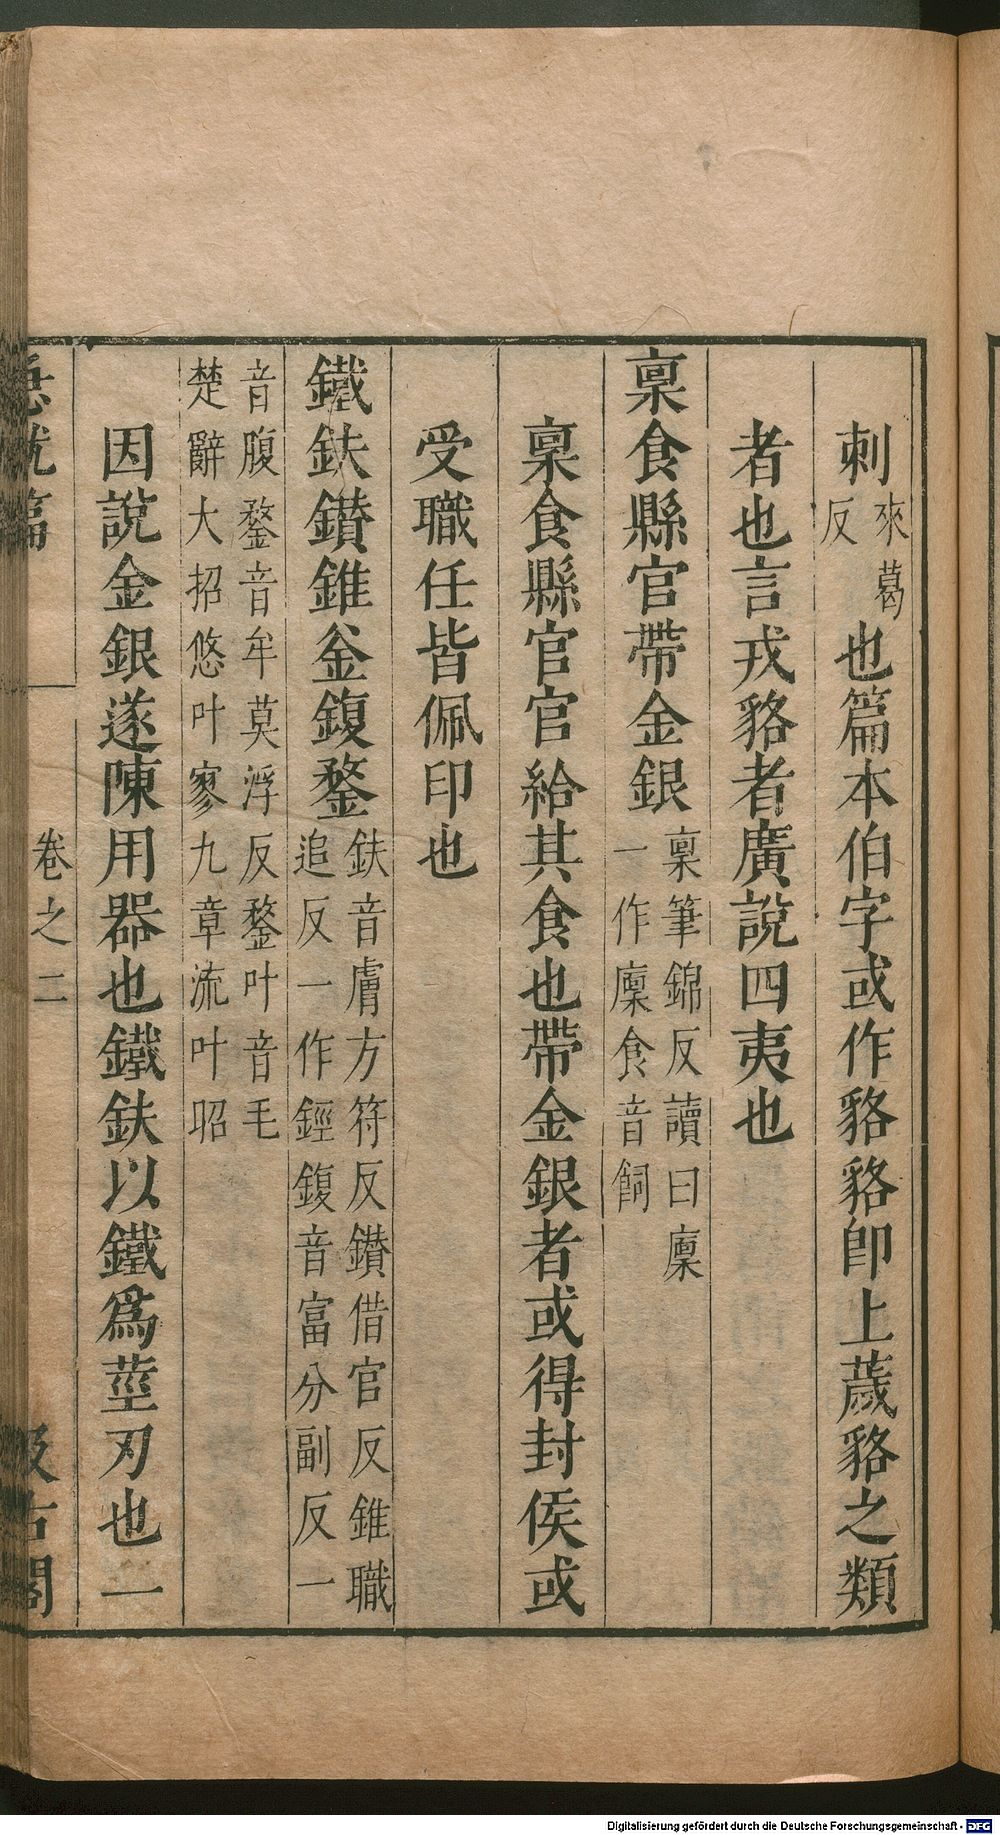 刺來葛反也篇本伯字或作貉貉卽上薉貉之類
者也言戎貉者廣說四夷也
稟食縣官帶金銀稟筆錦反讀曰廩一作廩食音飼
稟食縣官官給其食也帶金銀者或得封侯或
受職任皆佩印也
鐵鈇鑽錐釜鍑鍪鈇音膚方符反鑽借官反錐職追反一作鋞鍑音富分副反一
音腹鍪音牟莫浮反鍪叶音毛楚辭大招悠叶寥九章流叶昭
因說金銀遂陳用器也鐵鈇以鐵爲莖刃也一
急就篇 卷之二 汲古閣
Digitalisierung gefördert durch die Deutsche Forschungsgemeinschaft - DFG